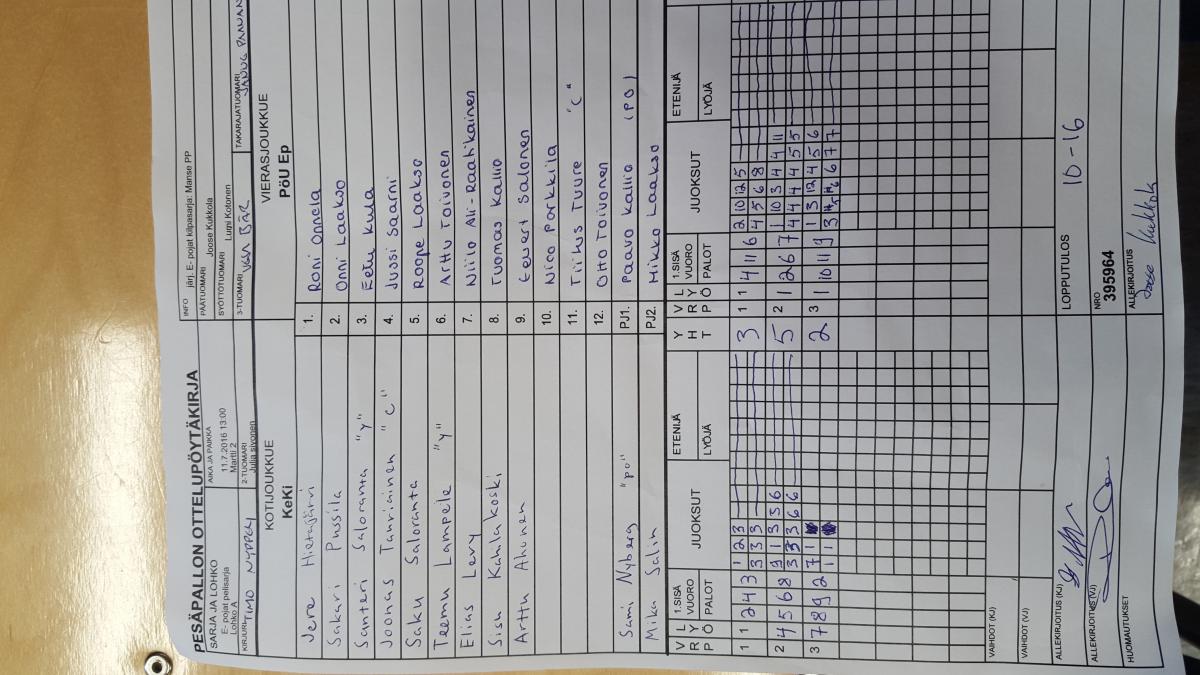 PESÄPALLON OTTELUPÖYTÄKIRJA
INFO järj. E- pojat kilpasarja: Manse PP
SARJA JA LOHKO
E- pojat pelisarja
Lohko A
AIKA JA PAIKKA
11.7.2016 13:00
Martti 2
PÄÄTUOMARI Joose Kukkola
SYÖTTÖTUOMARI Lumi Kotonen
KIRJURI TIMO NYPPELI
2-TUOMARI
Julia sivonen
3-TUOMARI
TAKARAJATUOMARI
KOTIJOUKKUE
KeKi
VIERASJOUKKUE
PöU Ep
Jere Hietajärvi 1. Roni Onnela
Sakari Pussila 2. Onni Laakso
Santeri Saloranta "y" 3. Eetu Kula
Joonas Tauriainen "c" 4. Jussi Saarni
Saku Saloranta 5. Roope Laakso
Teemu Lampela "y" 6. Arttu Toivonen
Elias Levy 7. Niilo Ali-Raatikainen
Sisu Kahlakoski 8. Tuomas Kallio
Arttu Ahonen 9. Eevert Salonen
10. Nico Parkkila
11. Tiitus Tuure "c"
12. Otto Toivonen
Sami Nyberg "po" PJ1. Paavo Kallio (PO)
Mika Salin PJ2. Mikko Laakso
V R P L Y Ö 1.SISÄ VUORO PALOT JUOKSUT ETENIJÄ LYÖJÄ Y H T V R P L Y Ö 1.SISÄ VUORO PALOT JUOKSUT ETENIJÄ LYÖJÄ
1 1 2 4 3 1 2 3 3 1 1 4 11 6 2 10 12 5
3 3 3 4 5 6 8
2 4 5 6 8 9 1 3 3 6 5 2 1 2 6 7 1 10 3 4 4 11
3 3 3 6 6 4 4 4 4 5 5
3 7 8 9 2 7 1 2 3 1 10 11 9 1 3 12 4 5 6
1 1 6 7 7
VAIHDOT (KJ)
VAIHDOT (VJ)
ALLEKIRJOITUS (KJ)
LOPPUTULOS 10-16
ALLEKIRJOITUS (VJ)
NRO
395964
HUOMAUTUKSET
ALLEKIRJOITUS
Joose Kukkola